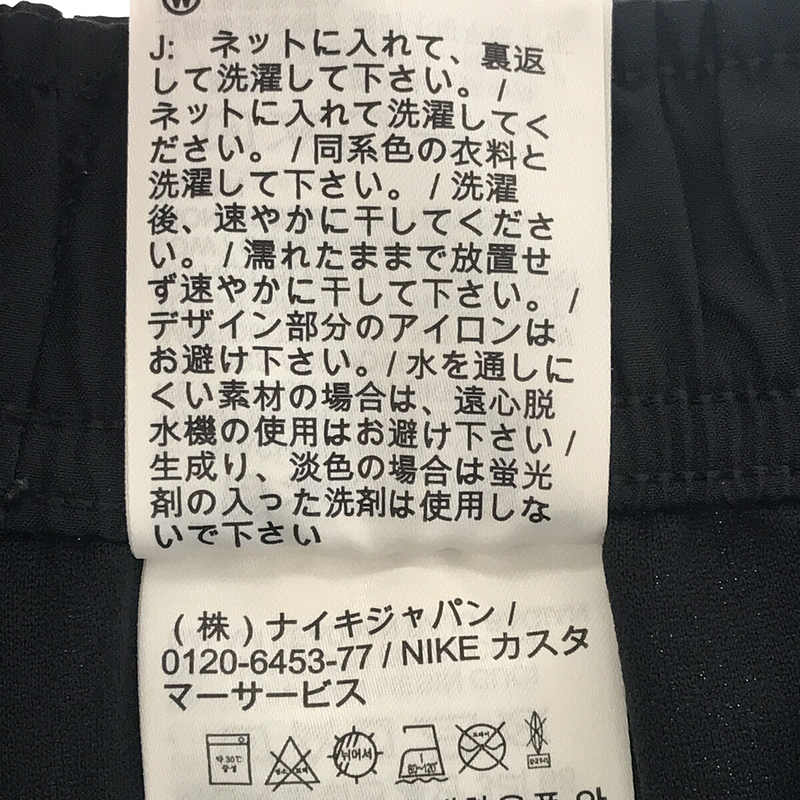 W
J: ネットに入れて、裏返
して洗濯して下さい。/
ネットに入れて洗濯してく
ださい。/ 同系色の衣料と
洗濯して下さい。/ 洗濯
後、速やかに干してくださ
い。/ 濡れたままで放置せ
ず速やかに干して下さい。/
デザイン部分のアイロンは
お避け下さい。/ 水を通しに
くい素材の場合は、遠心脱
水機の使用はお避け下さい /
生成り、淡色の場合は蛍光
剤の入った洗剤は使用しな
いで下さい
(株)ナイキジャパン /
0120-6453-77 / NIKE カスタ
マーサービス
약30℃ 중성 염소표백 뉘어서 80~120℃ 드라이